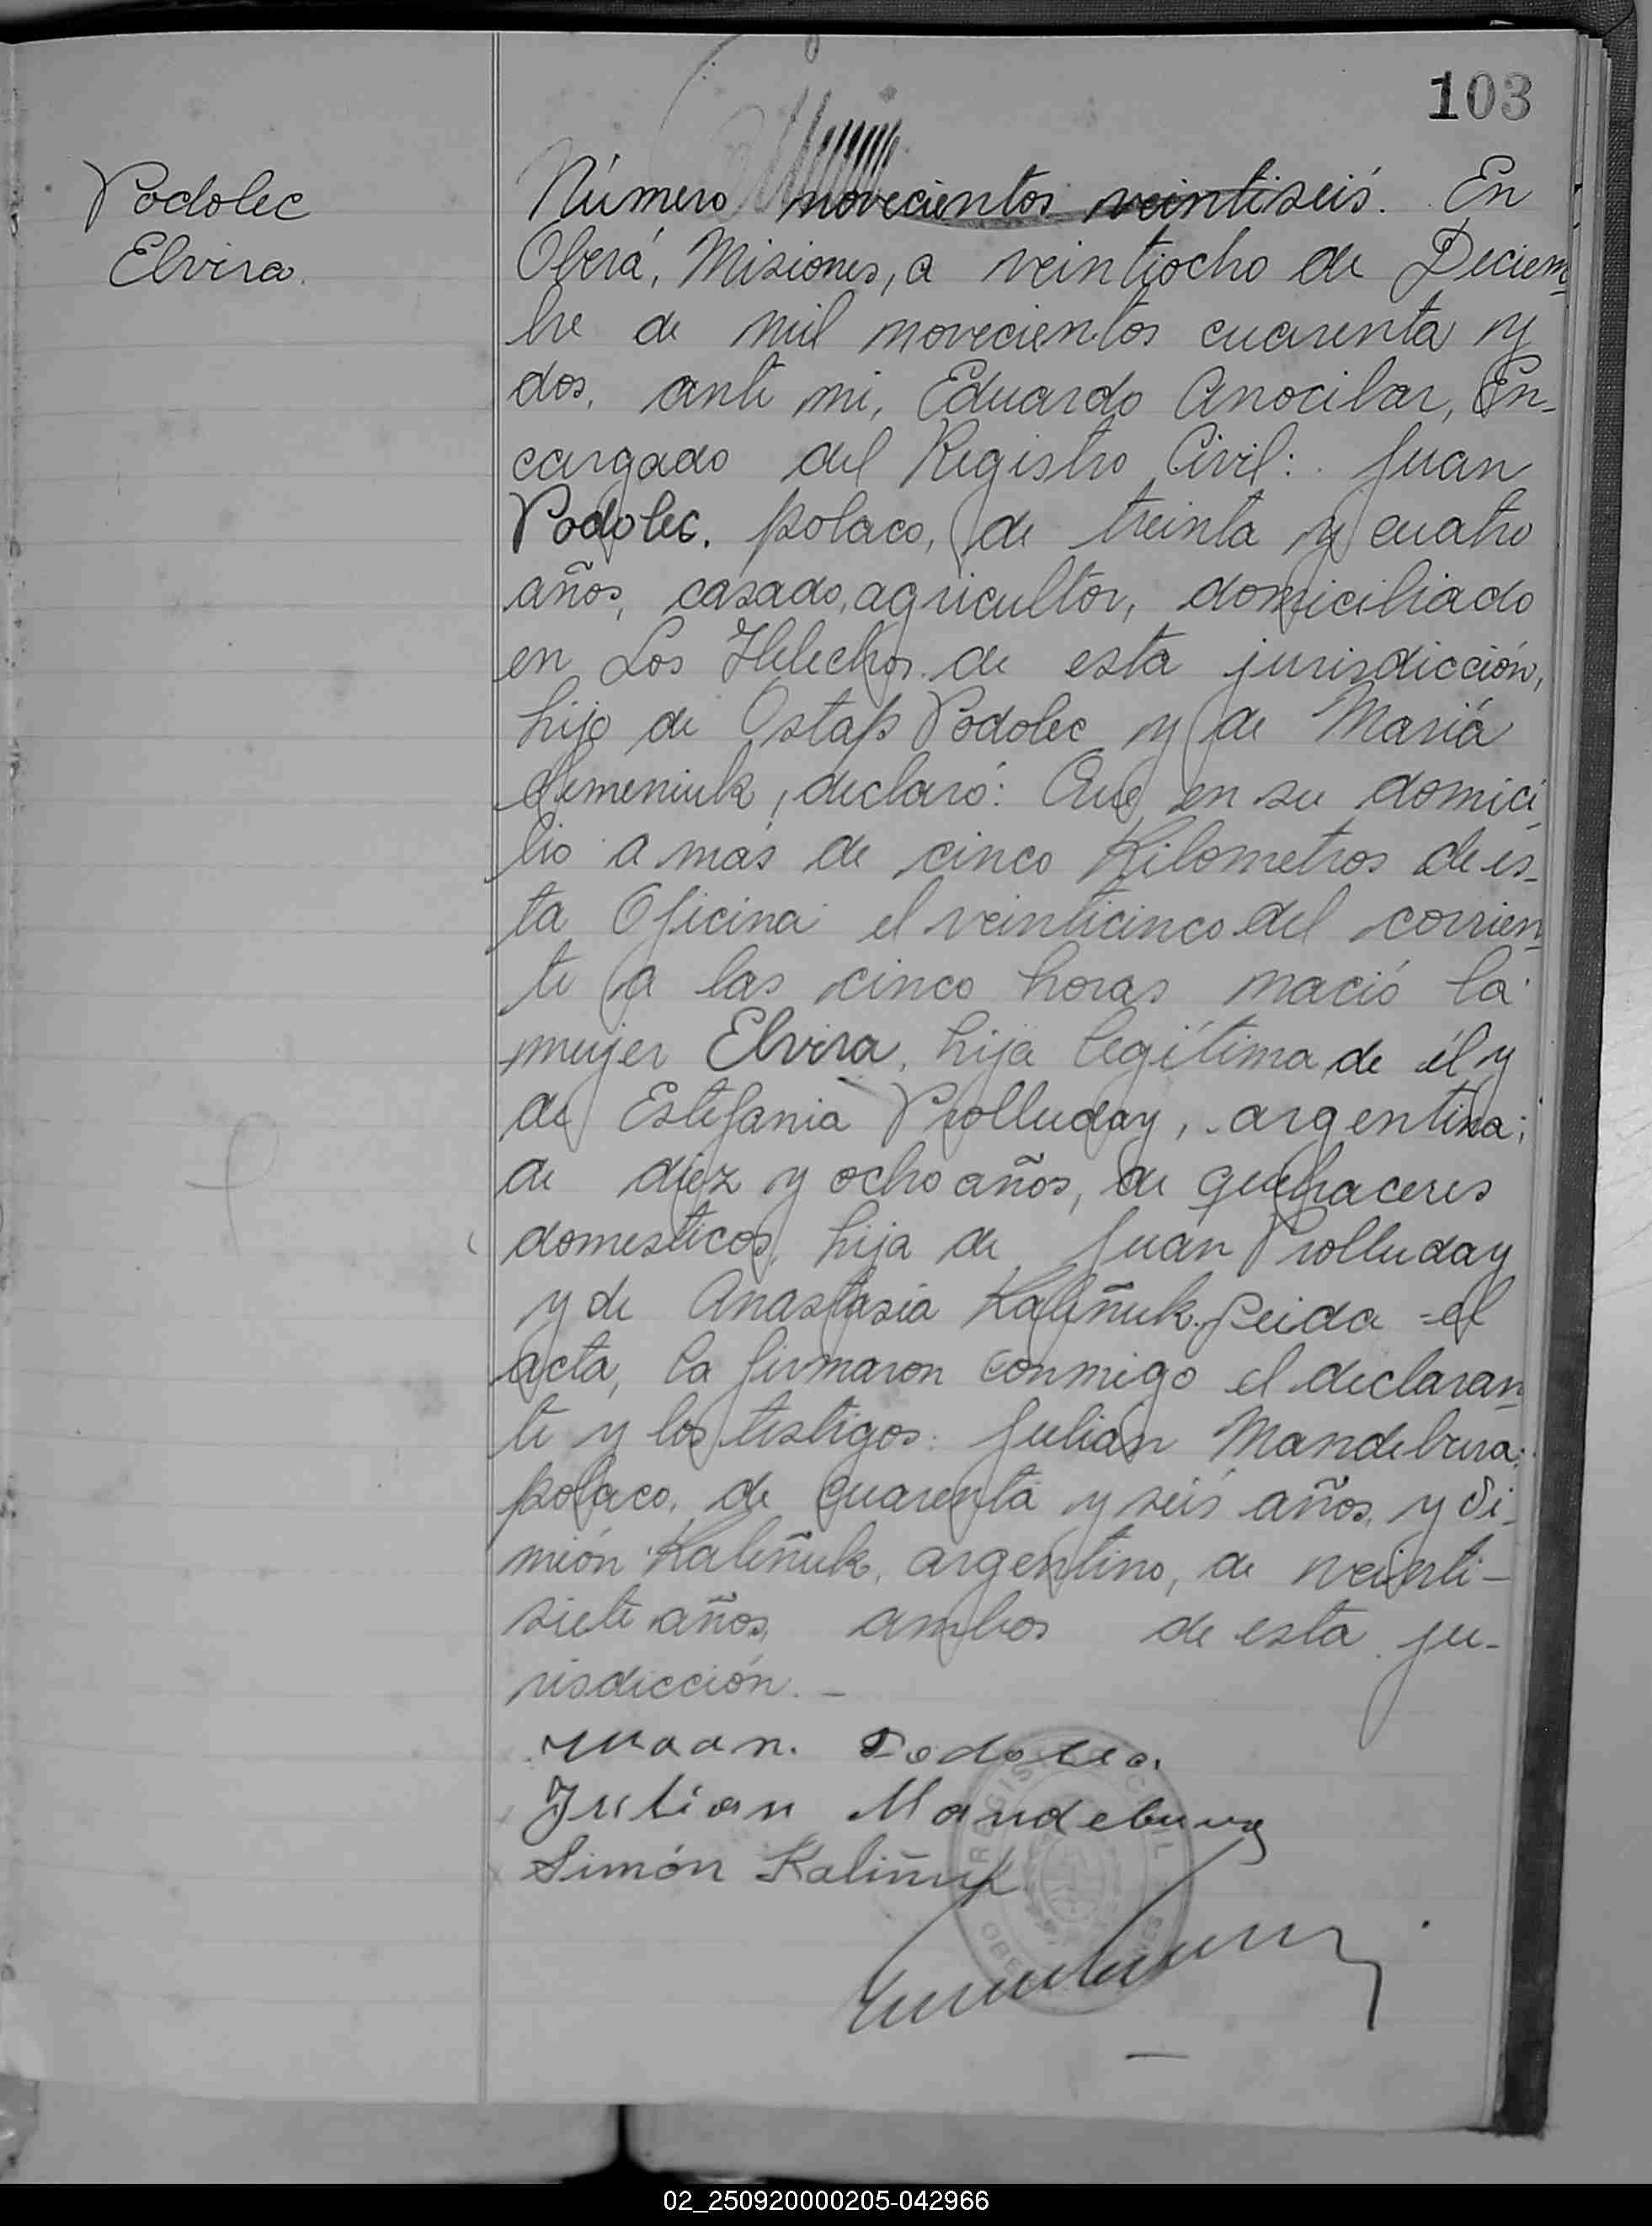 103
Podolec
Elvira.
Número novecientos veintiseis. En
Oberá, Misiones, a veintiocho de Diciem-
bre de mil novecientos cuarenta y
dos, ante mi, Eduardo Anocibar, En-
cargado del Registro Civil: Juan
Podolec, polaco, de treinta y cuatro
años, casado, agricultor, domiciliado
en Los Helechos de esta jurisdicción,
hijo de Ostap Podolec y de María
Semeniuk, declaró: Que en su domici-
lio a más de cinco Kilometros de es-
ta Oficina el veinticinco del corrien-
te a las cinco horas nació la
mujer Elvira, hija legítima de él y
de Estefania Prolluday, argentina;
de diez y ocho años, de quehaceres
domesticos, hija de Juan Prolluday
y de Anastasia Kaliñuk. Leida el
acta, la firmaron conmigo el declaran-
te y los testigos: Julián Mandebura;
polaco, de cuarenta y seis años, y Si-
mión Kaliñuk, argentino, de veinti-
siete años, ambos de esta ju-
risdicción. -
Juan. Podolec.
Julian Mandebura
Simón Kaliñuk
REGISTRO CIVIL
02_250920000205-042966